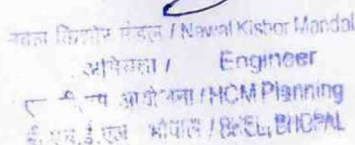 नवल किशोर मंडल / Nawal Kishor Mandal
अभियन्ता / Engineer
आयोजना / HCM Planning
भोपाल / BHEL, BHOPAL